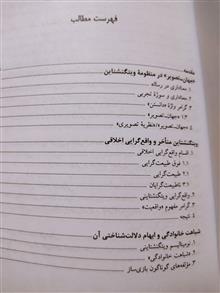 فهرست مطالب
مقدمه
«جهان-تصویر» در منظومهٔ ویتگنشتاین
۱. معناداری در رساله
۲. معناداری و سوژهٔ تجربی
۳. گرامر واژهٔ «دانستن»
۱.۳ «جهان-تصویر»
۴. «جهان-تصویر»/«نظریهٔ تصویری»
ویتگنشتاین متأخر و واقع‌گرایی اخلاقی
۱. اقسام واقع‌گرایی اخلاقی
۱.۱ فوق طبیعت‌گرایی
۲.۱ طبیعت‌گرایی
۳.۱ ناطبیعت‌گرایان
۲. واقع‌گرایی ویتگنشتاینی
۳. گرامر مفهوم «واقعیت»
۴. نتیجه
شباهت خانوادگی و ابهام دلالت‌شناختی آن
۱. نومینالیسم ویتگنشتاینی
۲. «شباهت خانوادگی»
۳. مؤلفه‌های گوناگون بازی‌ساز